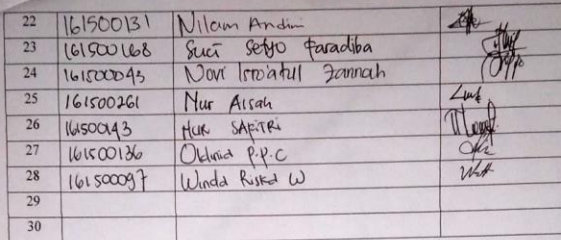 22 161500131 Nilam Andini
23 161500168 Suci Setyo Faradiba
24 161500043 Novi Isro'atul Jannah
25 161500261 Nur Aisah
26 161500143 Nur SAFITRI
27 161500136 Oktinia P.P.C
28 161500097 Winda Riska W
29
30